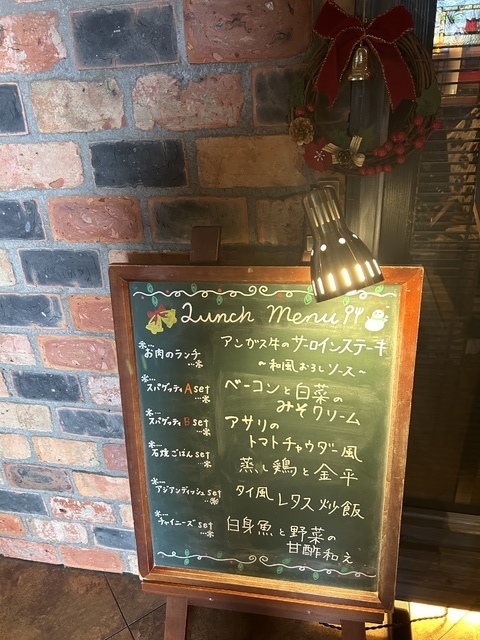 Lunch Menu 94
お肉のランチ
アンガス牛のサーロインステーキ
～和風おろしソース～
スパゲッティA set
ベーコンと白菜の
みそクリーム
スパゲッティB set
アサリの
トマトチャウダー風
石焼ごはん set
蒸し鶏と金平
アジアンディッシュ set
タイ風レタス炒飯
チャイニーズ set
白身魚と野菜の
甘酢和え